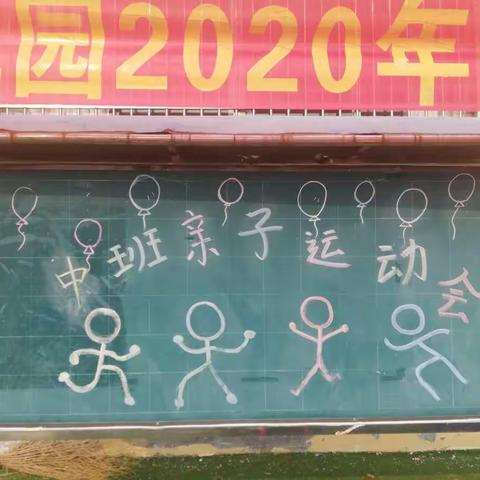 园2020年
中班亲子运动会